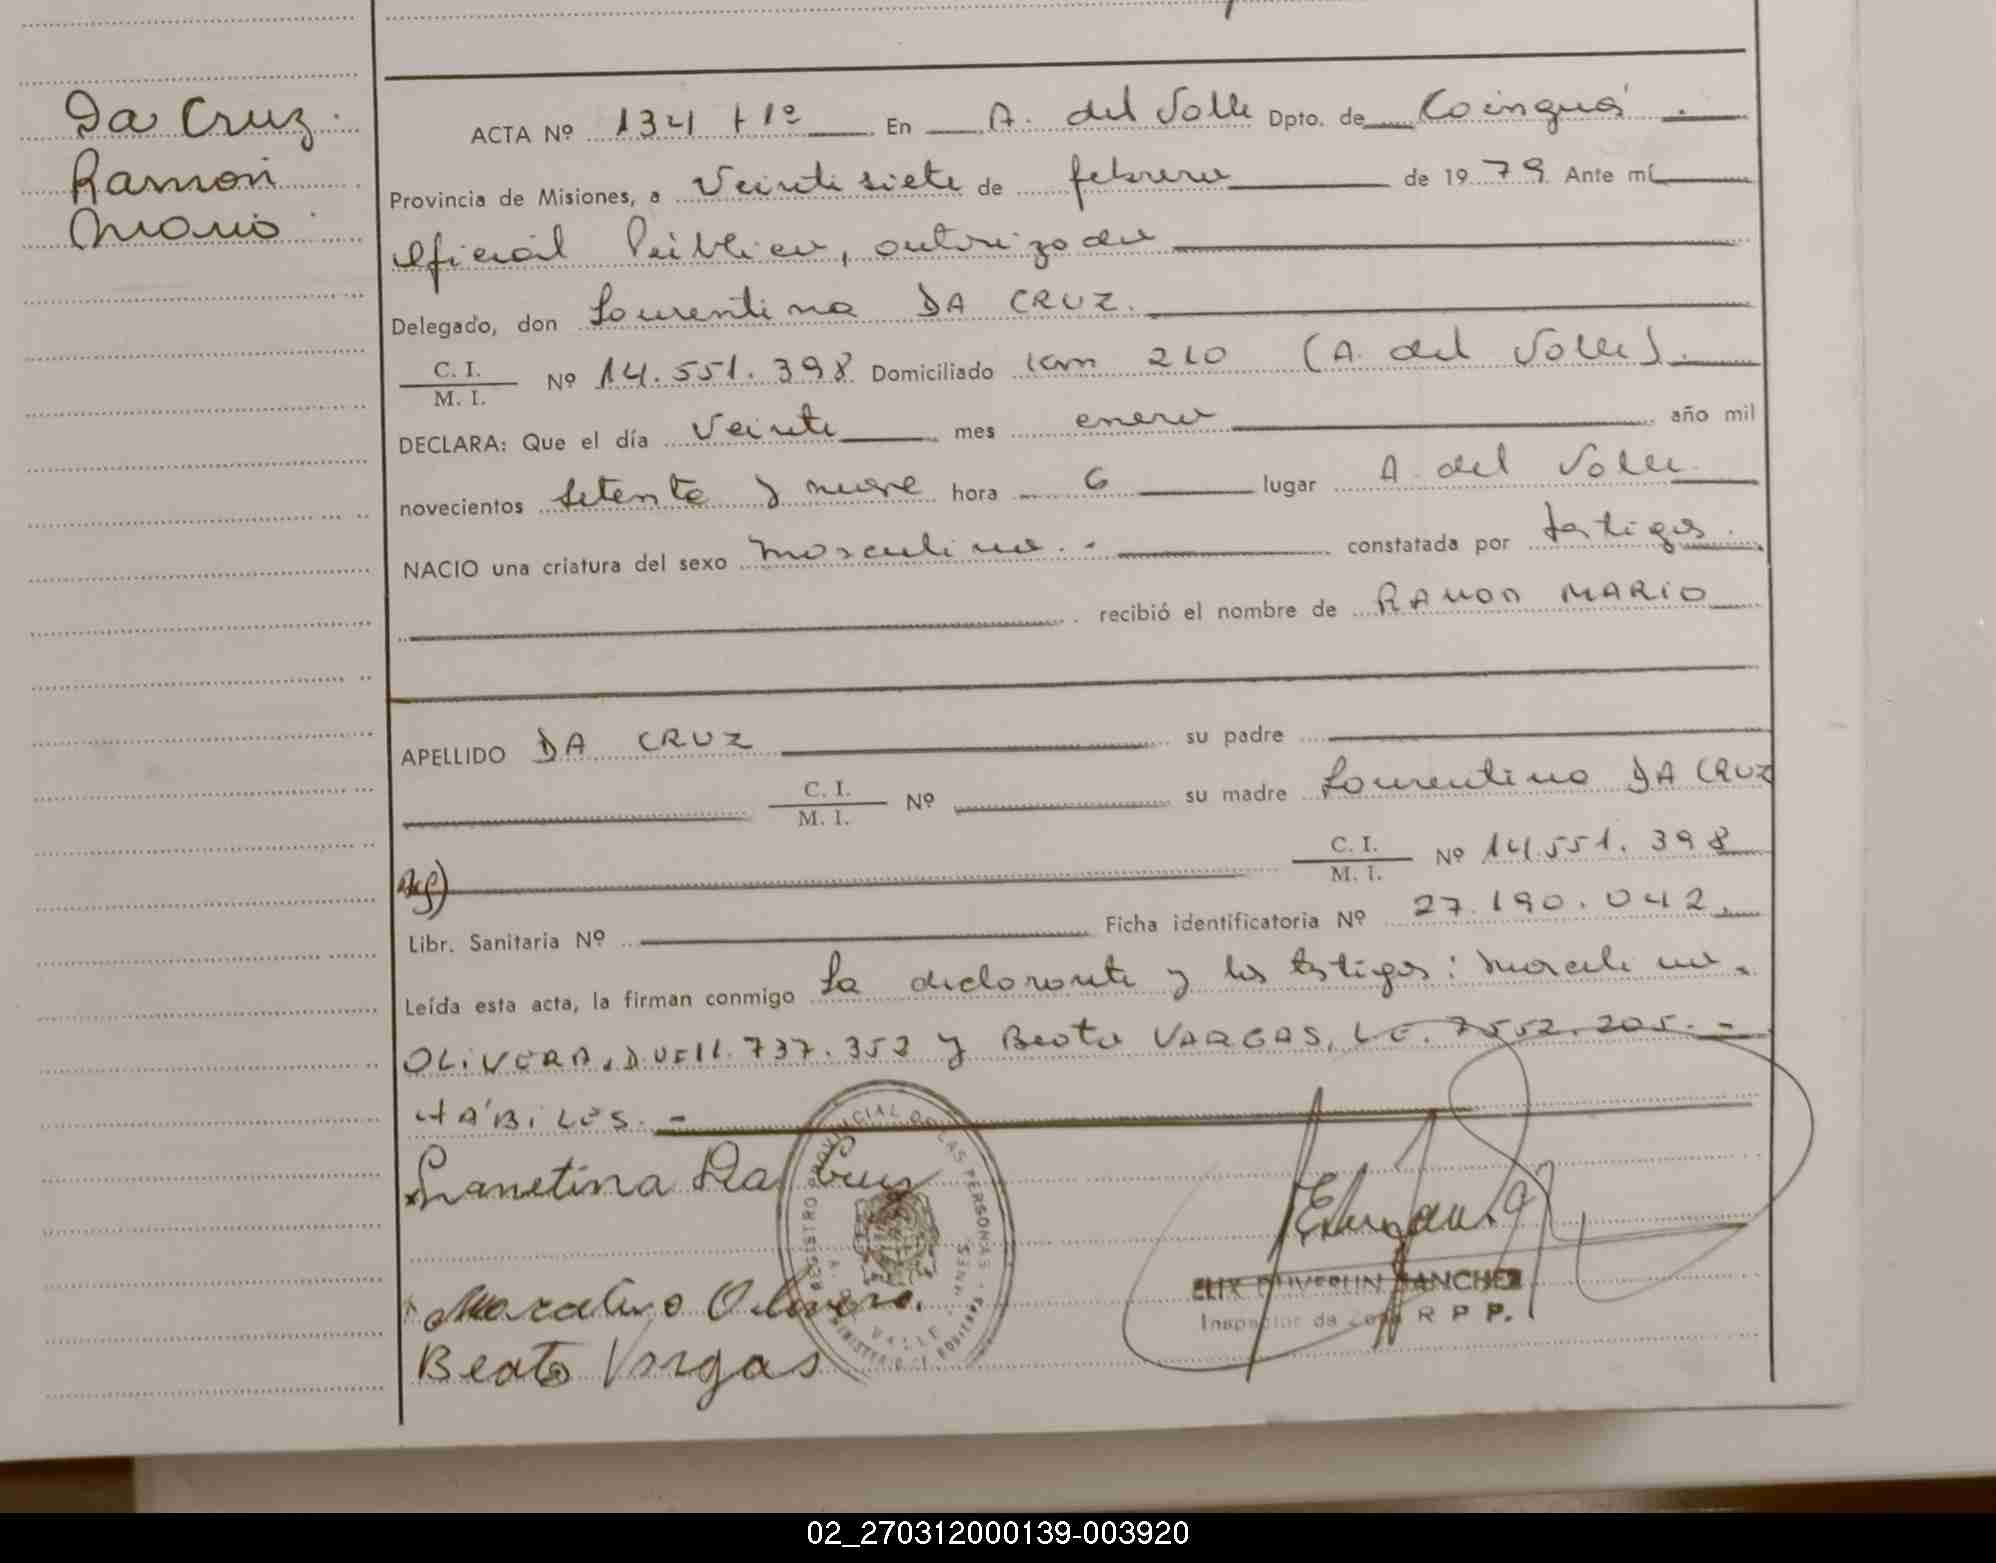 Da Cruz
Ramon
Mario
ACTA Nº 134 t 1º En A. del Valle Dpto. de Cainguás
Provincia de Misiones, a Veintisiete de febrero de 1979. Ante mí
Oficial Público, autorizado
Delegado, don Laurentina DA CRUZ.
C. I.
M. I. Nº 14.551.398 Domiciliado Km 210 (A. del Valle).
DECLARA: Que el día Veinte mes enero año mil
novecientos Setenta y nueve hora 6 lugar A. del Valle
NACIO una criatura del sexo masculino.- constatada por testigos.
recibió el nombre de RAMON MARIO
APELLIDO DA CRUZ su padre
C. I.
M. I. Nº su madre Laurentina DA CRUZ
C. I.
M. I. Nº 14.551.398
Libr. Sanitaria Nº Ficha identificatoria Nº 27.190.042.
Leída esta acta, la firman conmigo la declarante y los testigos: Marcelino
OLIVERA, 11.737.352 y Beato VARGAS, L.E. 7552.205.-
HÁBILES.-
Lauretina Da Cruz
Marcelino Olivera.
Beato Vargas
REGISTRO PROVINCIAL DE LAS PERSONAS
A. DEL VALLE
MISIONES
ELIX DUVERLIN SANCHEZ
Inspector de Zona R P P.
02_270312000139-003920